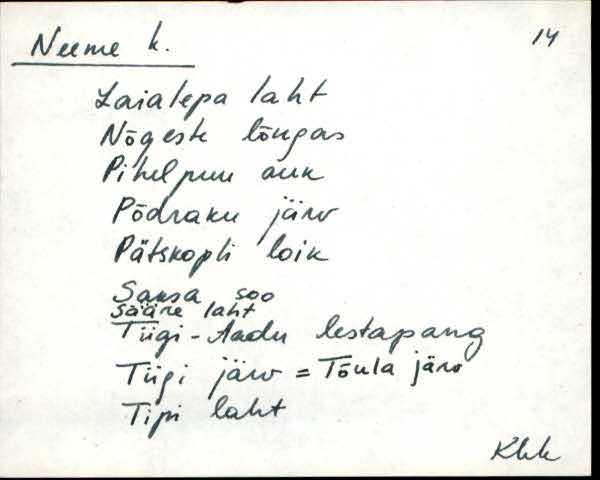 Neeme k.
14
Laialepa laht
Nõgeste lõugas
Pihelpuu auk
Põdraku järv
Pätskopli loik
Saksa soo
Sääre laht
Tiigi-Aadu lestapang
Tiigi järv = Tõula järv
Tipi laht
Khk